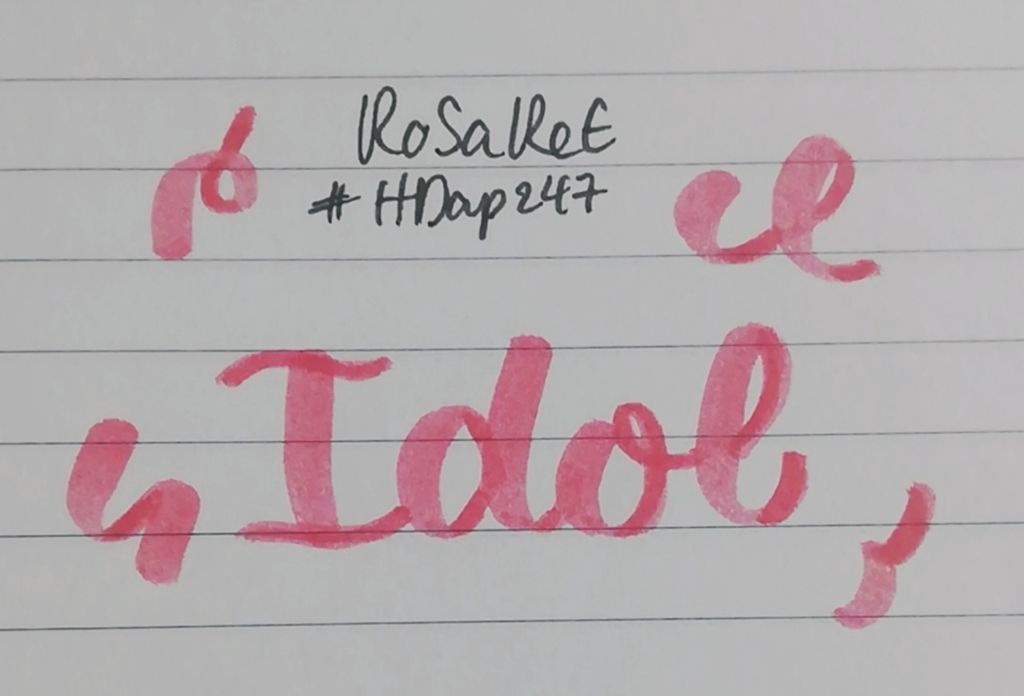 RoSaReE
#HDap247
Idol